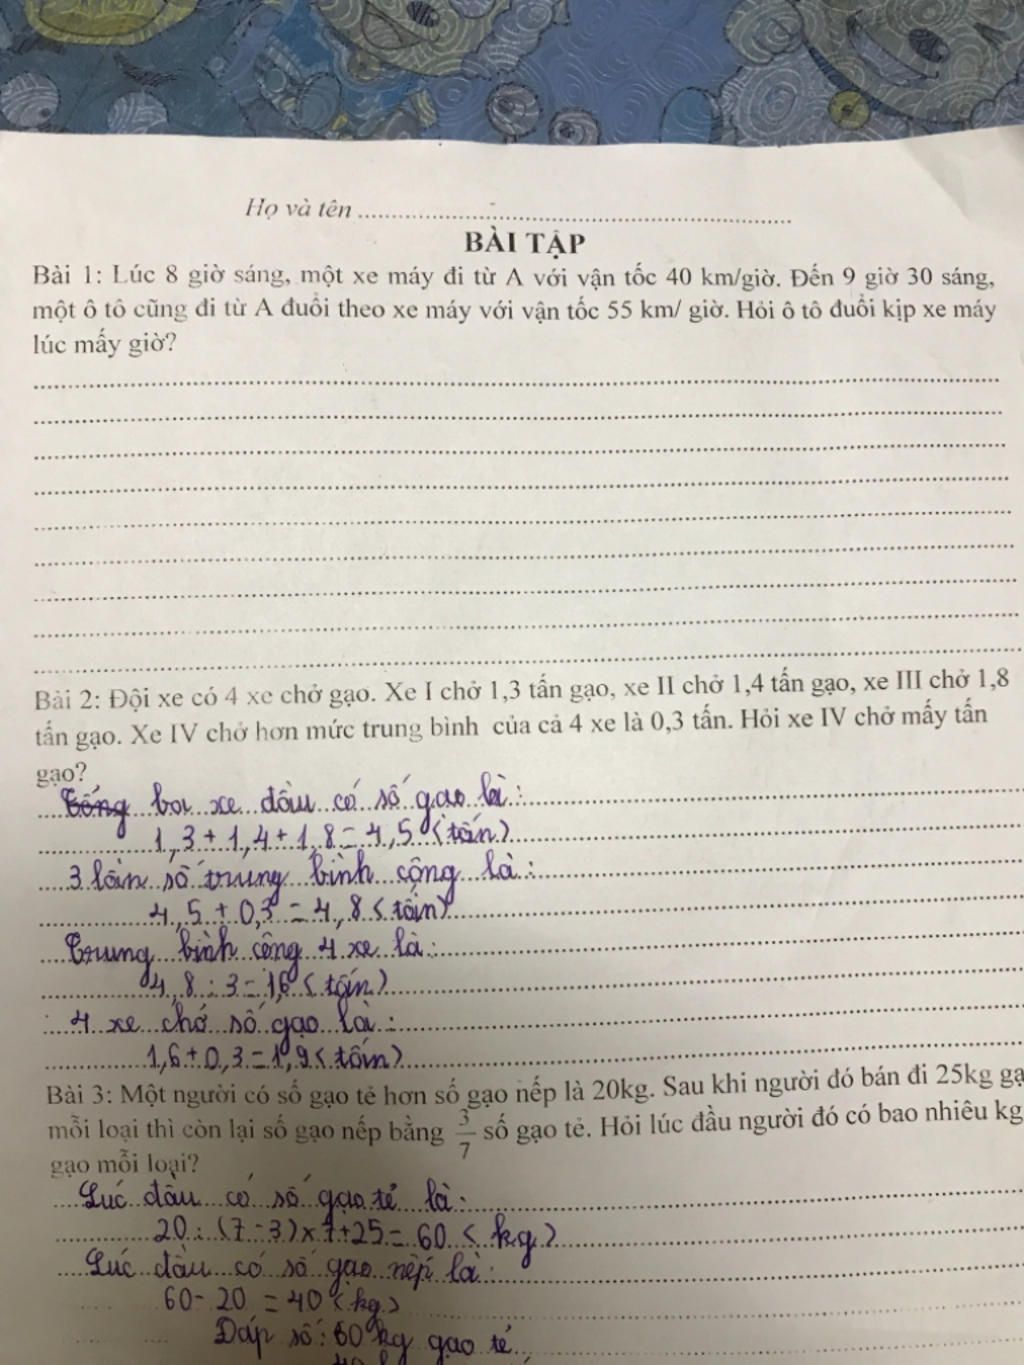 Họ và tên
BÀI TẬP
Bài 1: Lúc 8 giờ sáng, một xe máy đi từ A với vận tốc 40 km/giờ. Đến 9 giờ 30 sáng,
một ô tô cũng đi từ A đuổi theo xe máy với vận tốc 55 km/ giờ. Hỏi ô tô đuổi kịp xe máy
lúc mấy giờ?
Bài 2: Đội xe có 4 xe chở gạo. Xe I chở 1,3 tấn gạo, xe II chở 1,4 tấn gạo, xe III chở 1,8
tấn gạo. Xe IV chở hơn mức trung bình của cả 4 xe là 0,3 tấn. Hỏi xe IV chở mấy tấn
gạo?
Tổng ba xe đầu có số gạo là:
1,3 + 1,4 + 1,8 = 4,5 (tấn)
3 lần số trung bình cộng là:
4,5 + 0,3 = 4,8 (tấn)
Trung bình cộng 4 xe là:
4,8 : 3 = 1,6 (tấn)
4 xe chở số gạo là:
1,6 + 0,3 = 1,9 (tấn)
Bài 3: Một người có số gạo tẻ hơn số gạo nếp là 20kg. Sau khi người đó bán đi 25kg
mỗi loại thì còn lại số gạo nếp bằng 3/7 số gạo tẻ. Hỏi lúc đầu người đó có bao nhiêu kg
gạo mỗi loại?
Lúc đầu có số gạo tẻ là:
20 : (7 - 3) x 7 + 25 = 60 (kg)
Lúc đầu có số gạo nếp là:
60 - 20 = 40 (kg)
Đáp số: 60 kg gạo tẻ